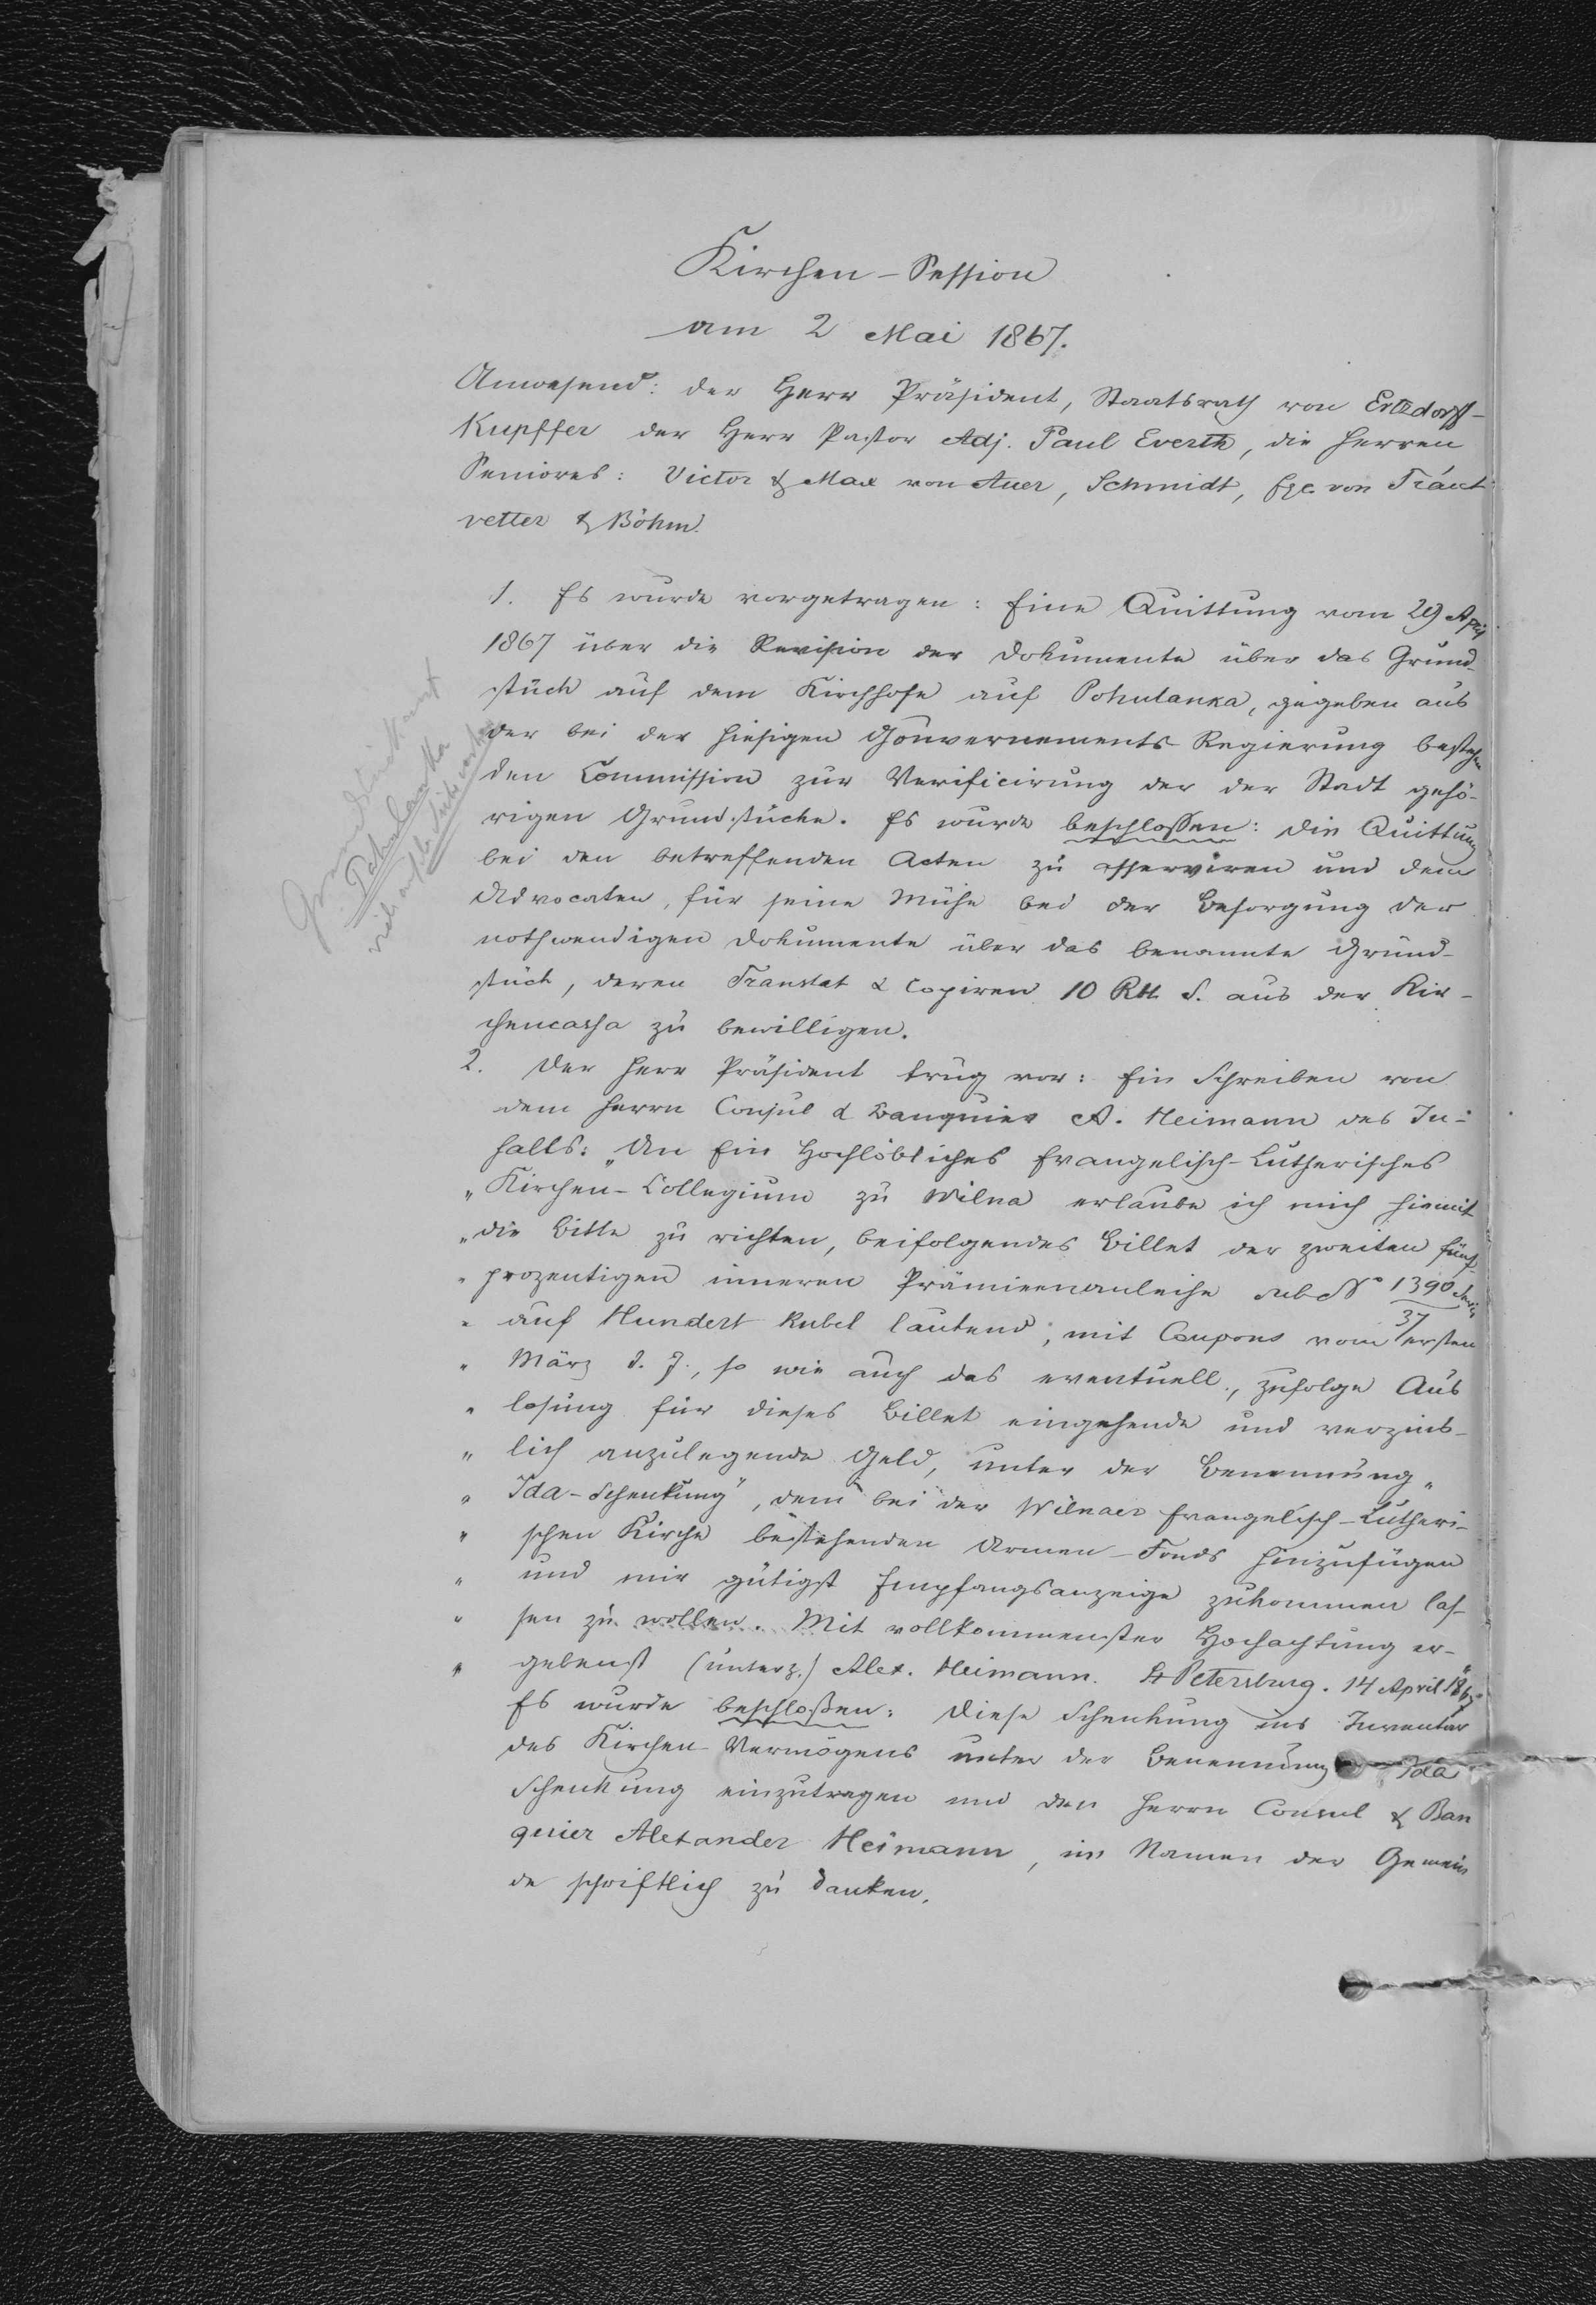 Kirchen-Session
am 2 Mai 1867.
Anwesend: der Herr Präsident, Staatsrath von Ertzdorff-
Kupffer der Herr Pastor Adj. Paul Everth, die Herren
Seniores: Victor & Max von Auer, Schmidt, Exc. von Traut
vetter & Böhm.
1. Es wurde vorgetragen: Eine Quittung vom 29 April
1867 über die Revision der Dokumente über das Grund-
stück auf dem Kirchhofe auf Pohulanka, gegeben aus
der bei der hiesigen Gouvernements-Regierung bestehen
den Commission zur Verificirung der der Stadt gehö-
rigen Grundstücke. Es wurde beschlossen: die Quittung
bei den betreffenden Acten zu asserviren und dem
Advocaten, für seine Mühe bei der Besorgung der
nothwendigen Dokumente über das benannte Grund-
stück, deren Translat & Copiren 10 Rbl. S. aus der Kir-
chencassa zu bewilligen.
2. Der Herr Präsident trug vor: Ein Schreiben von
dem Herrn Consul & Banquier A. Heimann des In-
halts: „An Ein Hochlöbliches Evangelisch-Lutherisches
„Kirchen-Collegium zu Wilna erlaube ich mich hiemit
„die Bitte zu richten, beifolgendes Billet der zweiten fünf
„prozentigen inneren Prämienanleihe sub No 1390 Serie
37
„auf Hundert Rubel lautend, mit Coupons vom ersten
„März d. J., so wie auch das eventuell, zufolge Aus
„losung für dieses Billet eingehende und verzins-
„lich anzulegende Geld, unter der Benennung „
„Ida-Schenkung", dem bei der Wilnaer Evangelisch-Lutheri-
„schen Kirche bestehenden Armen-Fonds hinzufügen
„und mir gütigst Empfangsanzeige zukommen las-
„sen zu wollen. Mit vollkommenster Hochachtung er-
„gebenst (unterz.) Alex. Heimann. St Petersburg. 14 April 1867"
Es wurde beschloßen: Diese Schenkung ins Inventar
des Kirchen-Vermögens unter der Benennung Ida
Schenkung einzutragen und den Herrn Consul & Ban
quier Alexander Heimann, im Namen der Gemein
de schriftlich zu danken.
Grundstück auf
Pohulanka